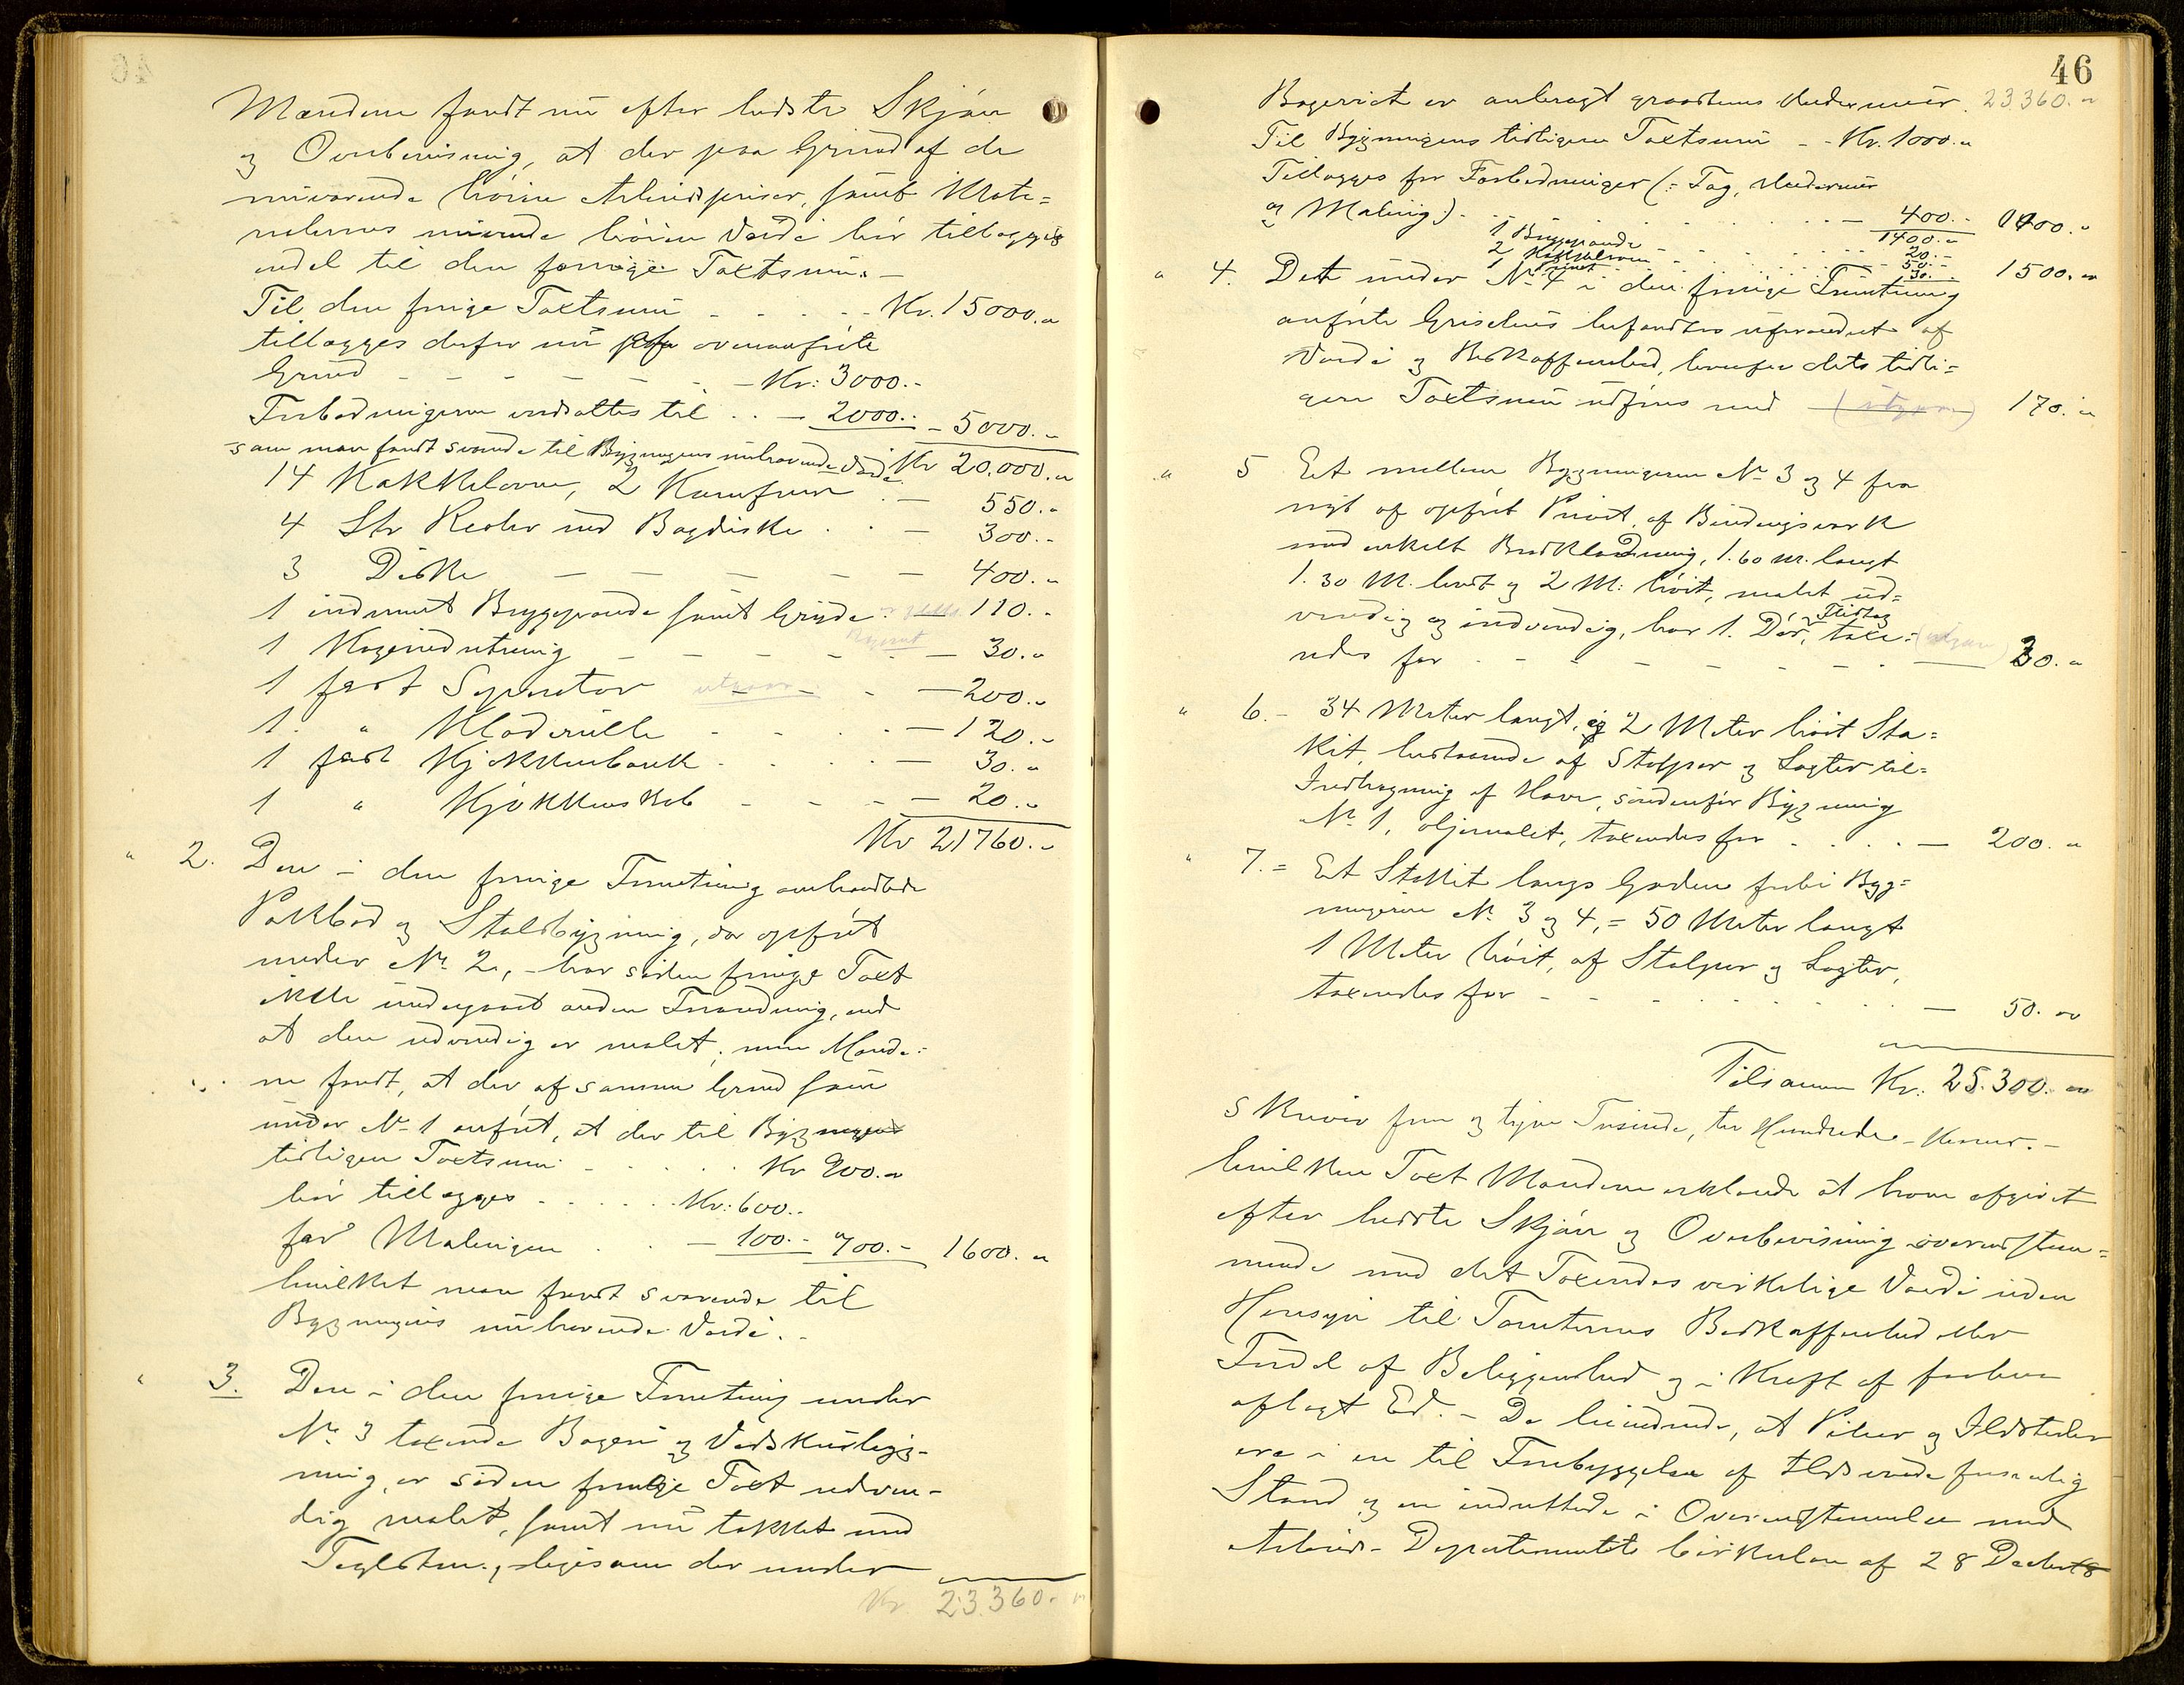 Mændene fandt nu efter bedste Skjøn
og Overbevisning, at der paa Grund af de
nuværende høiere Arbeidspriser, samt Mate=
rialernes nuværende høiere Værdi bør tillægges
endel til den forrige Taxtsum. —
Til den forrige Taxtsum - - - - - Kr. 15000.„
tillægges derfor nu paa ovenanførte
Grund - - - - - - - Kr: 3000.-
Forbedringerne ansattes til . . — 2000.- - 5000.-
som man fandt svarende til Bygningens nuhavende Værdi Kr 20.000.„
14 Kakkelovne, 2 Komfurer . — 550.„
4 Stk Reoler med Bagdiske . . — 300.-
3 Diske — — — — — 400.„
1 indmuret Bryggepande samt Gryde — 110.-
1 Kogeindretning — — — — — 30.„
1 fast Separator utgaar — — 200.„
1. „ Klæderulle - - - - — 120.-
1 fast Kjøkkenbænk . . . . — 30.„
1 „ Kjøkkenskab - - - — 20.„
Kr 21760.-
„ 2. Den i den forrige Forretning omhandlede
Pakbod og Staldbygning, der opført
under No 2, - har siden forrige Taxt
ikke undergaaet anden Forandring, end
at den udvendig er malet, men Mænde=
ne fandt, at der af samme Grund som
under No 1 anført, at der til Bygningens
tidligere Taxtsum - . . . . Kr 900.„
bør tillægges - . . . . Kr: 600.-
for Malingen . . — 100.- 700.- 1600.„
hvilket man fandt svarende til
Bygningens nuhavende Værdi. -
„ 3. Den i den forrige Forretning under
No 3 taxerede Bageri og Vedskjulbyg-
ning, er siden forrige Taxt udven-
dig malet, samt nu tækket med
Teglsten, ligesom der under
Kr 23.360.„
46
Bageriet er anbragt graastens Undermur. 23.360.„
Til Bygningens tidligere Taxtsum - - Kr. 1000.„
Tillægges for Forbedringer (: Tag, Undermur
og Maling:) - - - - - — 400.- 1400.„
1400.„
1 Bryggepande - - - - 20.-
2 Kakkelovne - - - - 50.-
1 - - - - 30.-
„ 4. Det under No 4 i den forrige Forretning 1500.„
anførte Grisehus befandtes uforandret af
Værdi og Beskaffenhed, hvorfor dets tidli=
gere Taxtsum udføres med — (utgaar) 170.„
„ 5 Et mellem Bygningerne No 3 og 4 fra
nyt af opført Privet, af Bindingsverk
med enkelt Bordklædning, 1.60 M. langt
1.30 M. bredt og 2 M: høit, malet ud=
vendig og indvendig, har 1. Dør, Flistag taxe= (utgaar)
redes for - - - - - - - - — 30.„
„ 6. - 34 Meter langt, og 2 Meter høit Sta=
kit, bestaaende af Stolper og Lægter til
Indhegning af Have, søndenfor Bygning
No 1, oljemalet, taxeredes for - . . . — 200.„
„ 7. = Et Stakit langs Gaden forbi Byg=
ningerne No 3 og 4, = 50 Meter langt
1 Meter høit, af Stolper og Lægter,
taxeredes for - - - - - - - — 50.„
Tilsammen Kr. 25.300.„
skriver fem og tyve Tusinde, tre Hundrede Kroner. -
hvilken Taxt Mændene erklærede at have afgivet
efter bedste Skjøn og Overbevisning overensstem=
mende med det Taxeredes virkelige Værdi uden
Hensyn til Tomternes Beskaffenhed eller
Fordel af Beliggenhed og i Kraft af forhen
aflagt Ed. - De bevidnede, at Piber og Ildsteder
ere i en til Forebyggelse af Ildsvaade forsvarlig
Stand og ere indrettede i Overensstemmelse med
Arbeids-Departementets Cirkulære af 28 Decbr 18